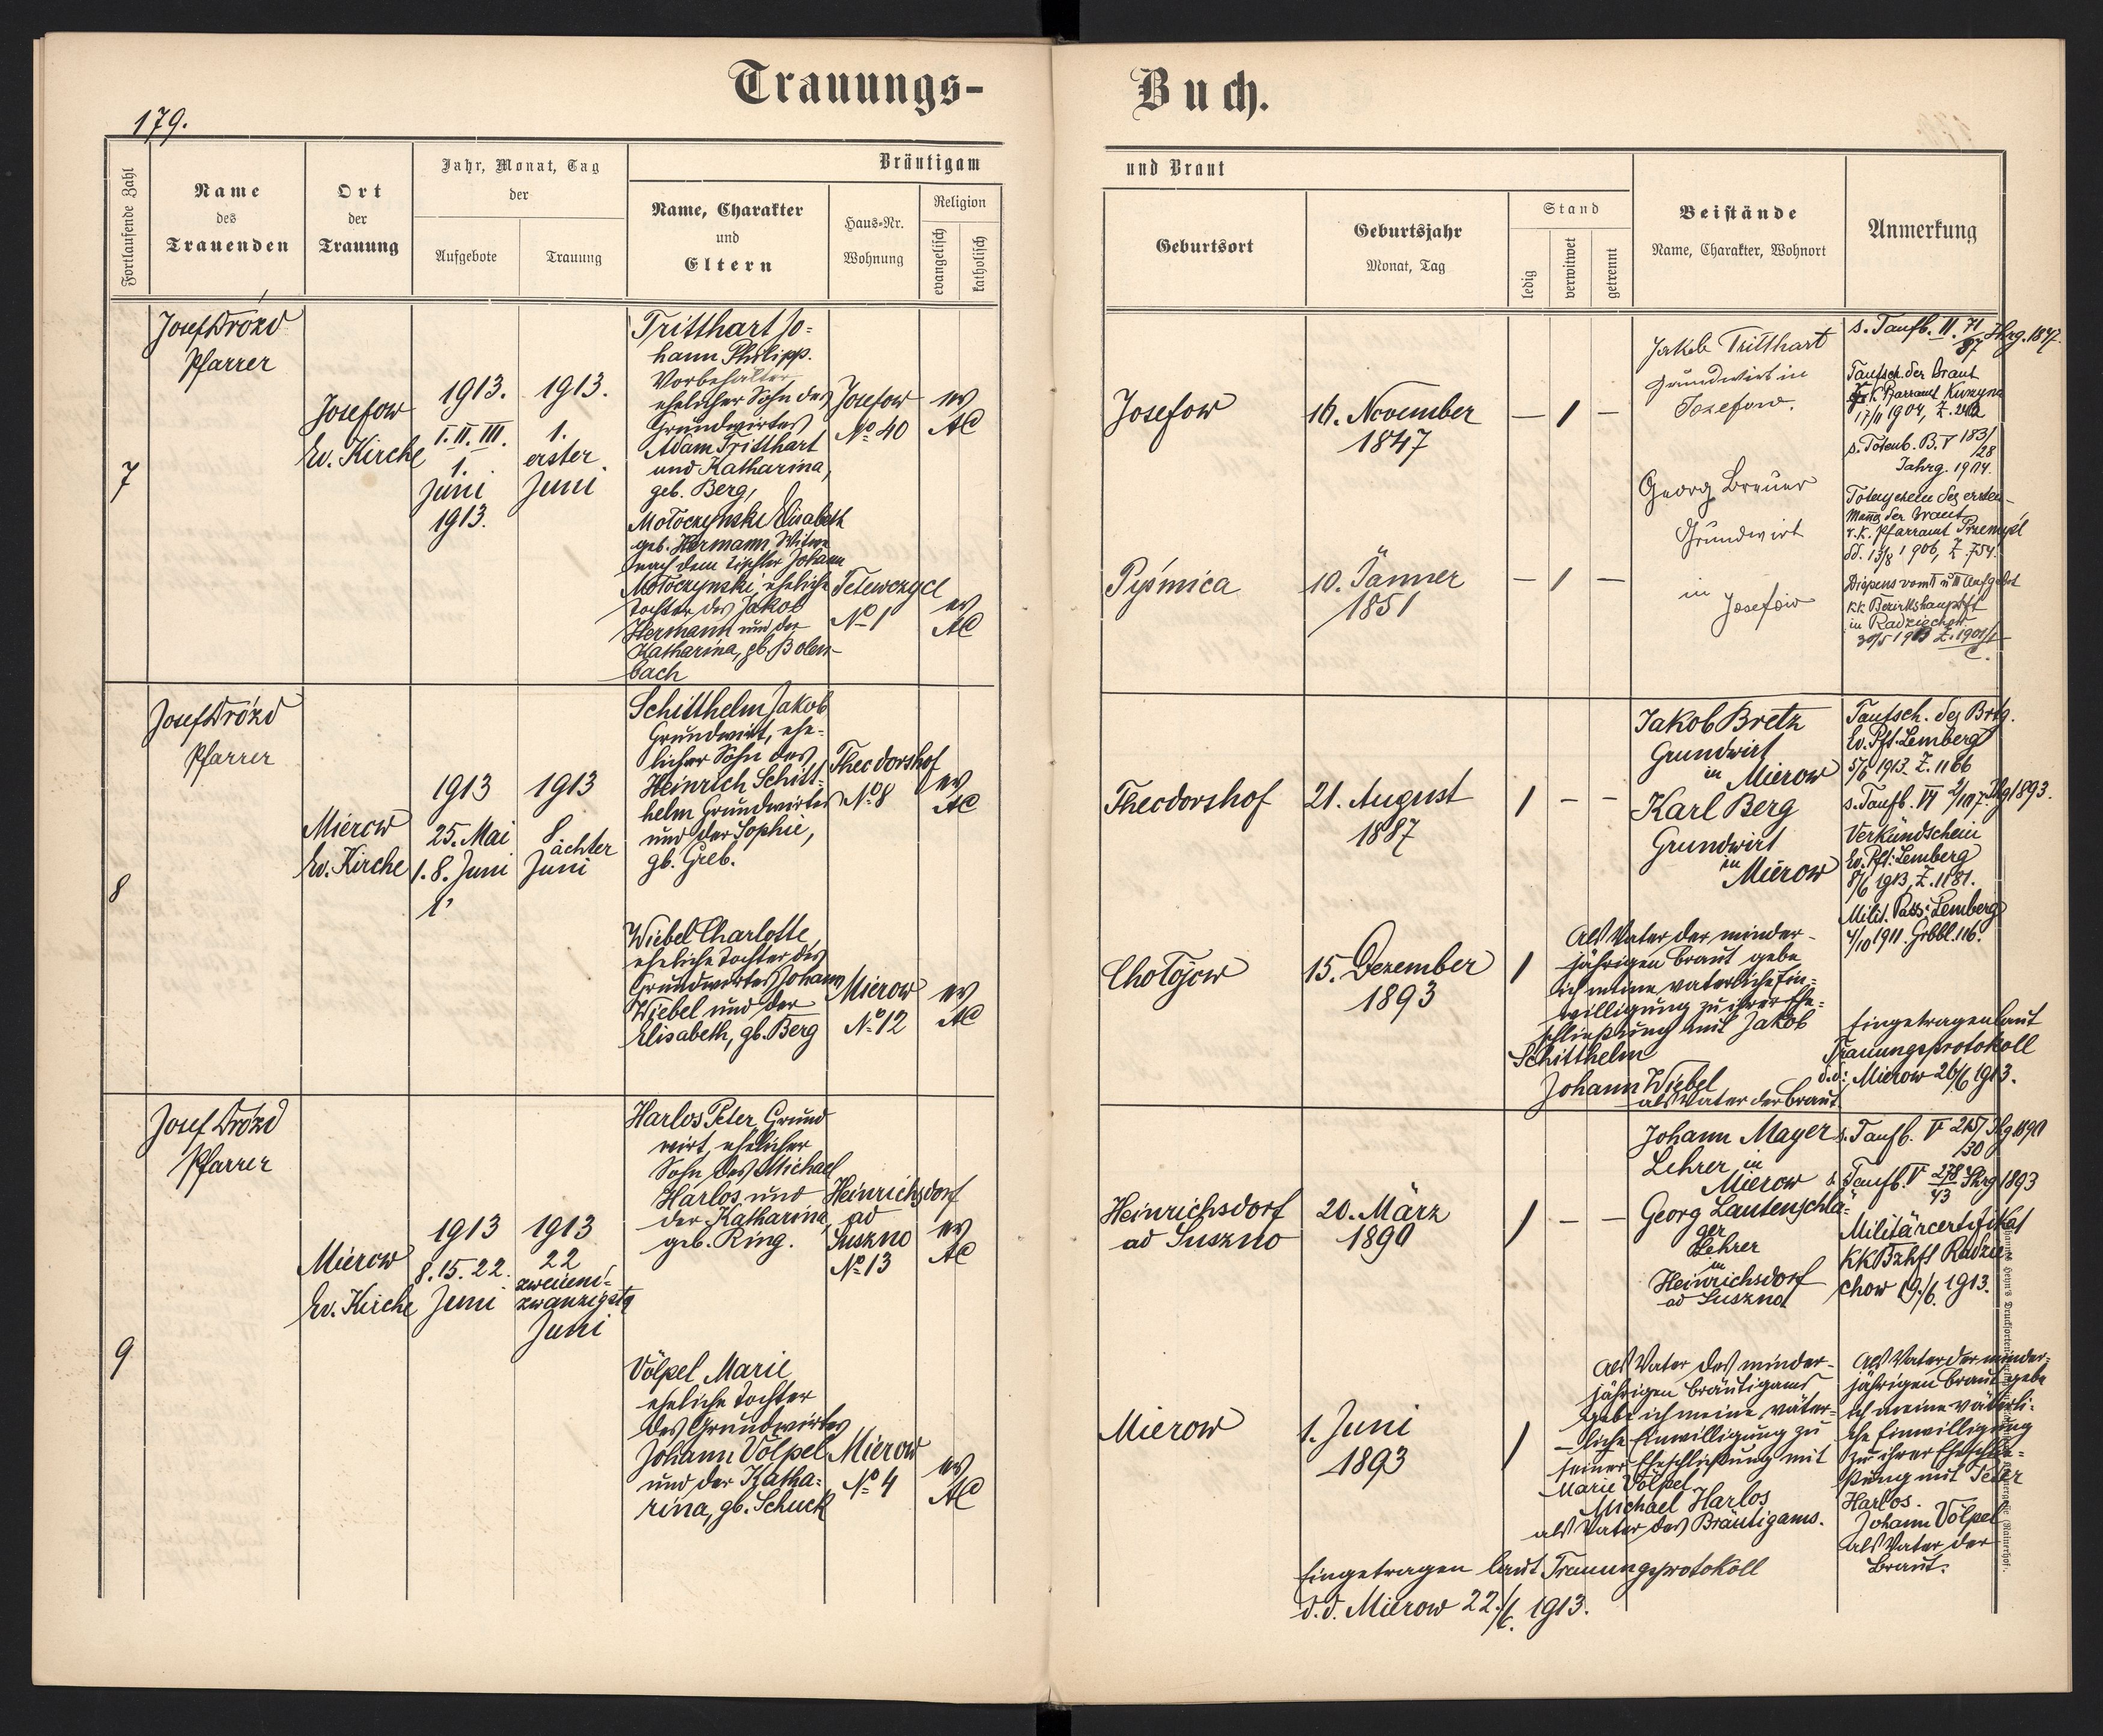 Trauungs-
Buch.
179.
Fortlaufende Zahl
Name
des
Trauenden
Ort
der
Trauung
Jahr, Monat, Tag
der
Aufgebote
Trauung
Bräutigam
Name, Charakter
und
Eltern
Haus-Nr.
Wohnung
Religion
evangelisch
katholisch
und Braut
Geburtsort
Geburtsjahr
Monat, Tag
Stand
ledig
verwitwet
getrennt
Beistände
Name, Charakter, Wohnort
Anmerkung
7
Josef Drózd
Pfarrer
Josefow
Ev. Kirche
1913.
I. II. III.
1.
Juni
1913.
1913.
1.
erster
Juni
Tritthart Jo=
hann Philipp.
Vorbehälter
ehelicher Sohn des
Grundwirtes
Adam Tritthart
und Katharina,
geb. Berg,
Josefow
No 40
ev
AC
Mołoczynski Elisabeth
geb. Hermann, Witwe
nach dem Tischler Johann
Mołoczynski, eheliche
Tochter des Jakob
Hermann und der
Katharina, gb. Bolen-
bach
Tetewczyce
No 1
ev
AC
Josefow
16. November
1847
— / —
Pyśnica
10. Jänner
1851
— / —
Jakob Tritthart
Grundwirt in
Josefow.
Georg Breuer
Grundwirt
in
Josefow
s. Taufb. II. 71/87 Jhrg. 1847.
Taufsch. der Braut
Pfarramt
s. Totenb. B. V 183/28
Jahrg. 1904.
Totenschein des ersten
Mannes der Braut
r.k. Pfarramt Przemysl
dd. 13/8 1906, Z. 754.
Dispens vom II u III Aufgebot
KK Bezirkshauptft
in Radziechow
30/5 1913 Z.
8
Josef Drózd
Pfarrer
Mierow
Ev. Kirche
1913
25. Mai
1. 8. Juni
1913
8. achter
Juni
Schitthelm Jakob
Grundwirt, ehe-
licher Sohn des
Heinrich Schitt-
helm Grundwirtes
und der Sophie,
gb. Greb.
Theodorshof
No 8
ev
AC
Wiebel Charlotte,
eheliche Tochter des
Grundwirtes Johann
Wiebel und der
Elisabeth, gb. Berg
Mierow
No 12
ev
AC
Theodorshof
21. August
1887
/ – –
Chołojow
15. Dezember
1893
/
Jakob Bretz
Grundwirt
in Mierow
Karl Berg
Grundwirt
in
Mierow
Als Vater der minder-
jährigen Braut gebe
ich meine väterliche Ein-
willigung zu ihrer Ehe-
schließung mit Jakob
Schitthelm
Johann Wiebel
als Vater der Braut
Taufsch. des Brtg.
Ev. Pft. Lemberg
5/6 1913 Z. 1166
s. Taufb. VI 2/107. Jhg 1893.
Verkündschein
Ev. Pft: Lemberg
8/6 1913, Z. 1181.
Milit. Pass: Lemberg
4/10 1911. Grbbl. 116.
Eingetragen laut
Trauungsprotokoll
d.d: Mierow 26/6 1913.
9
Josef Drózd
Pfarrer
Mierow
Ev. Kirche
1913
8. 15. 22.
Juni
1913
22
zweiund-
zwanzigste
Juni
Harlos Peter, Grund
wirt, ehelicher
Sohn des Michael
Harlos und
der Katharina
geb. Ring.
Heinrichsdorf
ad
Suszno
No 13
ev
AC
Völpel Marie
eheliche Tochter
des Grundwirtes
Johann Völpel
und der Katha-
rina, gb. Schuck
Mierow
No 4
ev
AC
Heinrichsdorf
ad Suszno
20. März
1890
/ – –
Mierow
1. Juni
1893
/
Johann Mayer
Lehrer in
Mierow
Georg Lautenschlä-
ger
Lehrer
in
Heinrichsdorf
ad Suszno
s. Taufb. V 215/30 Jhg 1890
s. Taufb. V 278/43 Jhrg 1893
Militärcertifikat
KK Bzhft Radzie-
chow 19./6. 1913.
Als Vater des minder-
jährigen Bräutigams
gebe ich meine väter-
liche Einwilligung zu
seiner Eheschließung mit
Marie Völpel
Michael Harlos
als Vater des Bräutigams.
Als Vater der minder-
jährigen Braut gebe
ich meine väterli-
che Einwilligung
zu ihrer Eheschlie-
ßung mit Peter
Harlos.
Johann Völpel
als Vater der
Braut.
Eingetragen laut Trauungsprotokoll
d.d. Mierow 22./6. 1913.